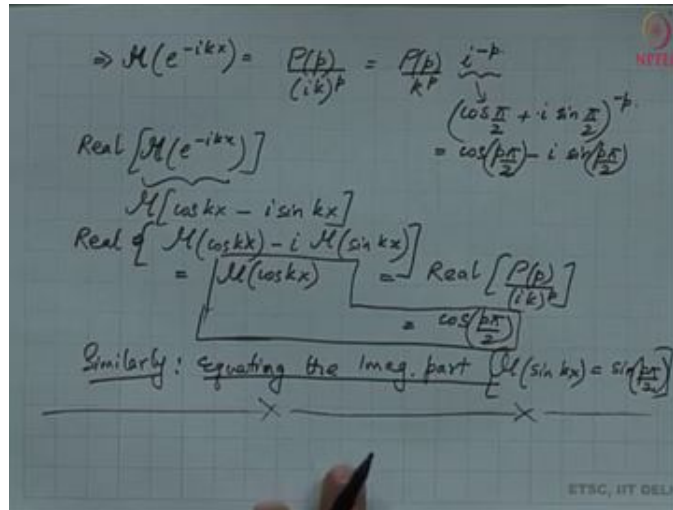 ⇒ M(e^{-ikx}) = Γ(p)/(ik)^p = Γ(p)/k^p i^{-p}
(cos π/2 + i sin π/2)^{-p}
= cos(pπ/2) - i sin(pπ/2)
Real [M(e^{-ikx})]
M[cos kx - i sin kx]
Real { M(cos kx) - i M(sin kx)]
= M(cos kx) = Real [Γ(p)/(ik)^p]
= cos(pπ/2)
Similarly: equating the Imag. part [M(sin kx) = sin(pπ/2)]
NPTEL
ETSC, IIT DEL